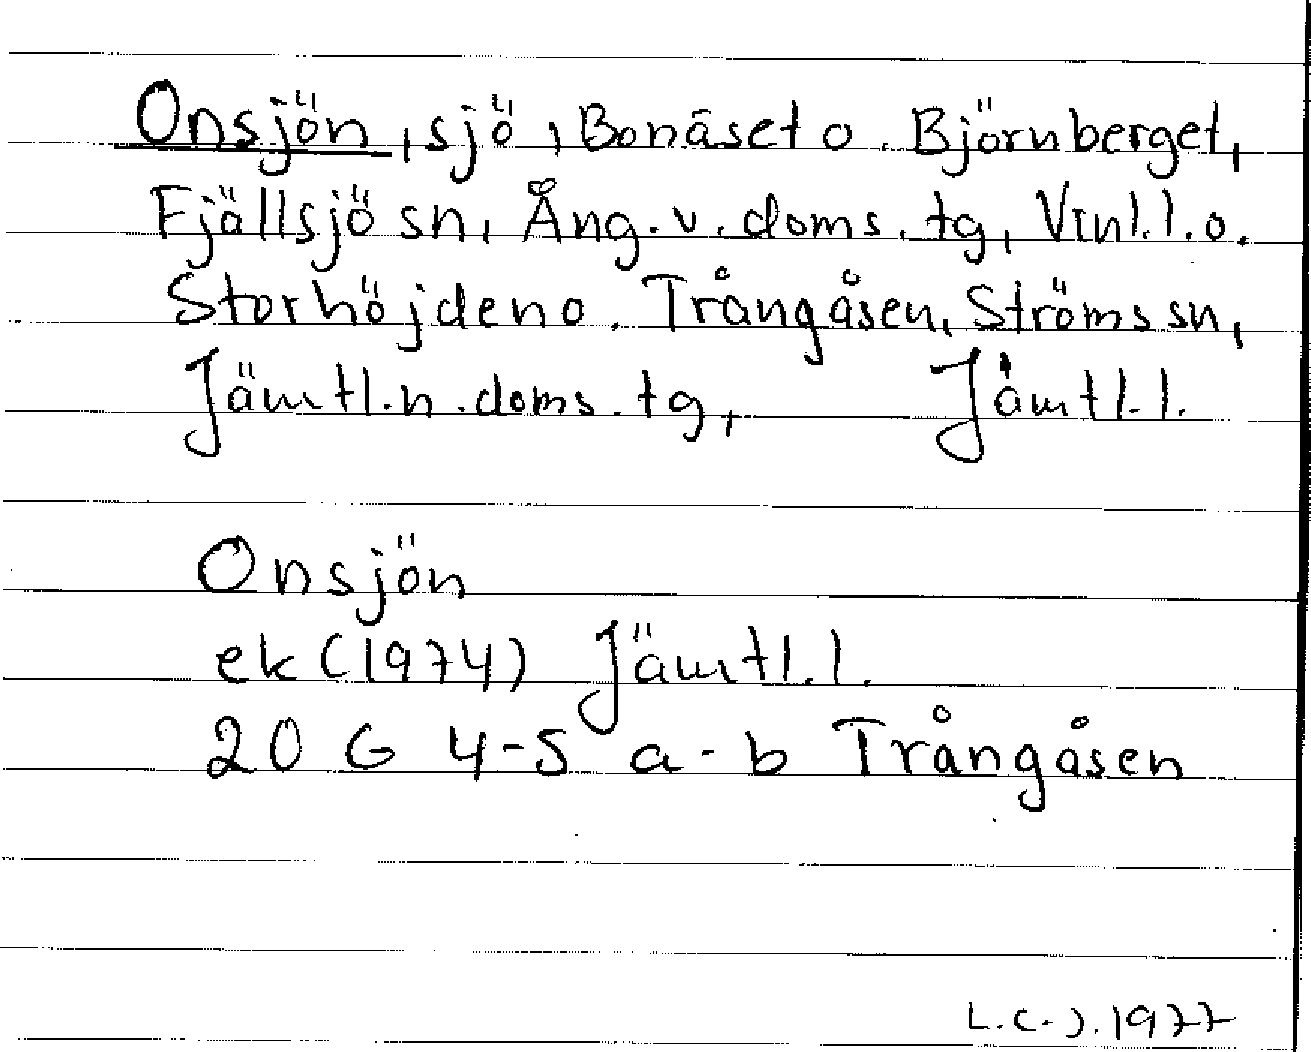 Onsjön, sjö, Bonäset o. Björnberget,
Fjällsjö sn, Ång. v. doms. tg, Vnl. l. o.
Storhöjden o. Trångåsen, Ströms sn,
Jämtl. n. doms. tg, Jämtl. l.
Onsjön
ek (1974) Jämtl. l.
20 G 4-5 a-b Trångåsen
L.C.J. 1977